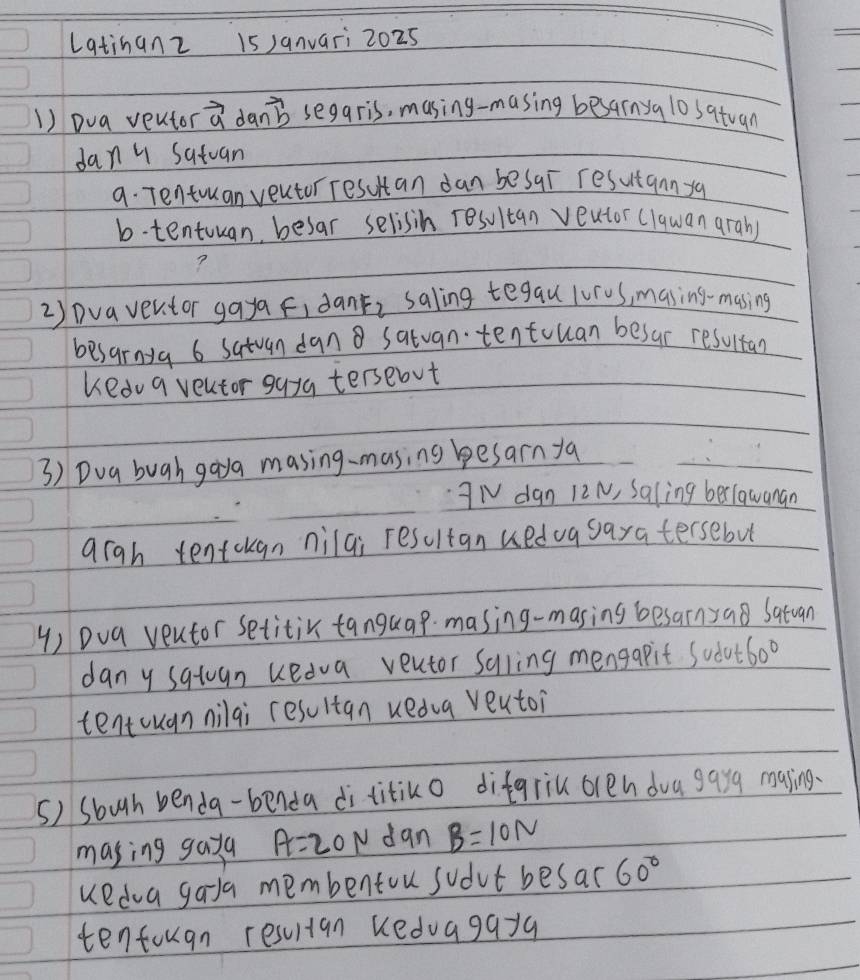 Latihan 2 15 Januari 2025
1) Dua vektor a⃗ dan b⃗ segaris. masing-masing besarnya 10 satuan
dan 4 satuan
a. Tentukan vektor resultan dan besar resultannya
b. tentukan besar selisih resultan vektor (lawan arah)
?
2) Dua vektor gaya F₁ dan F₂ saling tegak lurus, masing-masing
besarnya 6 satuan dan 8 satuan. tentukan besar resultan
kedua vektor gaya tersebut
3) Dua buah gaya masing-masing besarnya
7N dan 12 N, saling berlawanan
arah tentukan nilai resultan kedua gaya tersebut
4) Dua vektor setitik tangkap. masing-masing besarnya 8 satuan
dan 4 satuan kedua vektor saling mengapit sudut 60°
tentukan nilai resultan kedua vektor
5) Sbuah benda-benda di titik O ditarik oleh dua gaya masing-
masing gaya A=20N dan B=10N
kedua gaya membentuk sudut besar 60°
tentukan resultan kedua gaya